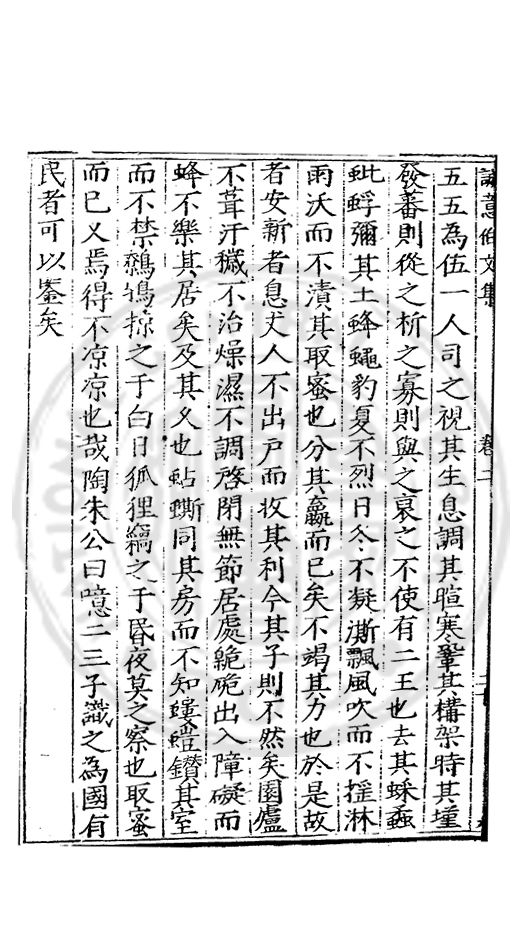 誠意伯文集 卷二
五五為伍一人司之視其生息調其暄寒鞏其構架時其墐
發蕃則從之析之寡則與之裒之不使有二王也去其蛛蟊
蚍蜉彌其土蜂蠅豹夏不烈日冬不凝澌飄風吹而不搖淋
雨沃而不漬其取蜜也分其贏而已矣不竭其力也於是故
者安新者息丈人不出戸而收其利今其子則不然矣園廬
不葺汙穢不治燥濕不調啓閉無節居處臲卼出入障礙而
蜂不樂其居矣及其久也蛅蟖同其房而不知螻螘鑽其室
而不禁鷯鴂掠之于白日狐狸竊之于昏夜莫之察也取蜜
而已又焉得不凉凉也哉陶朱公曰噫二三子識之為國有
民者可以鑒矣